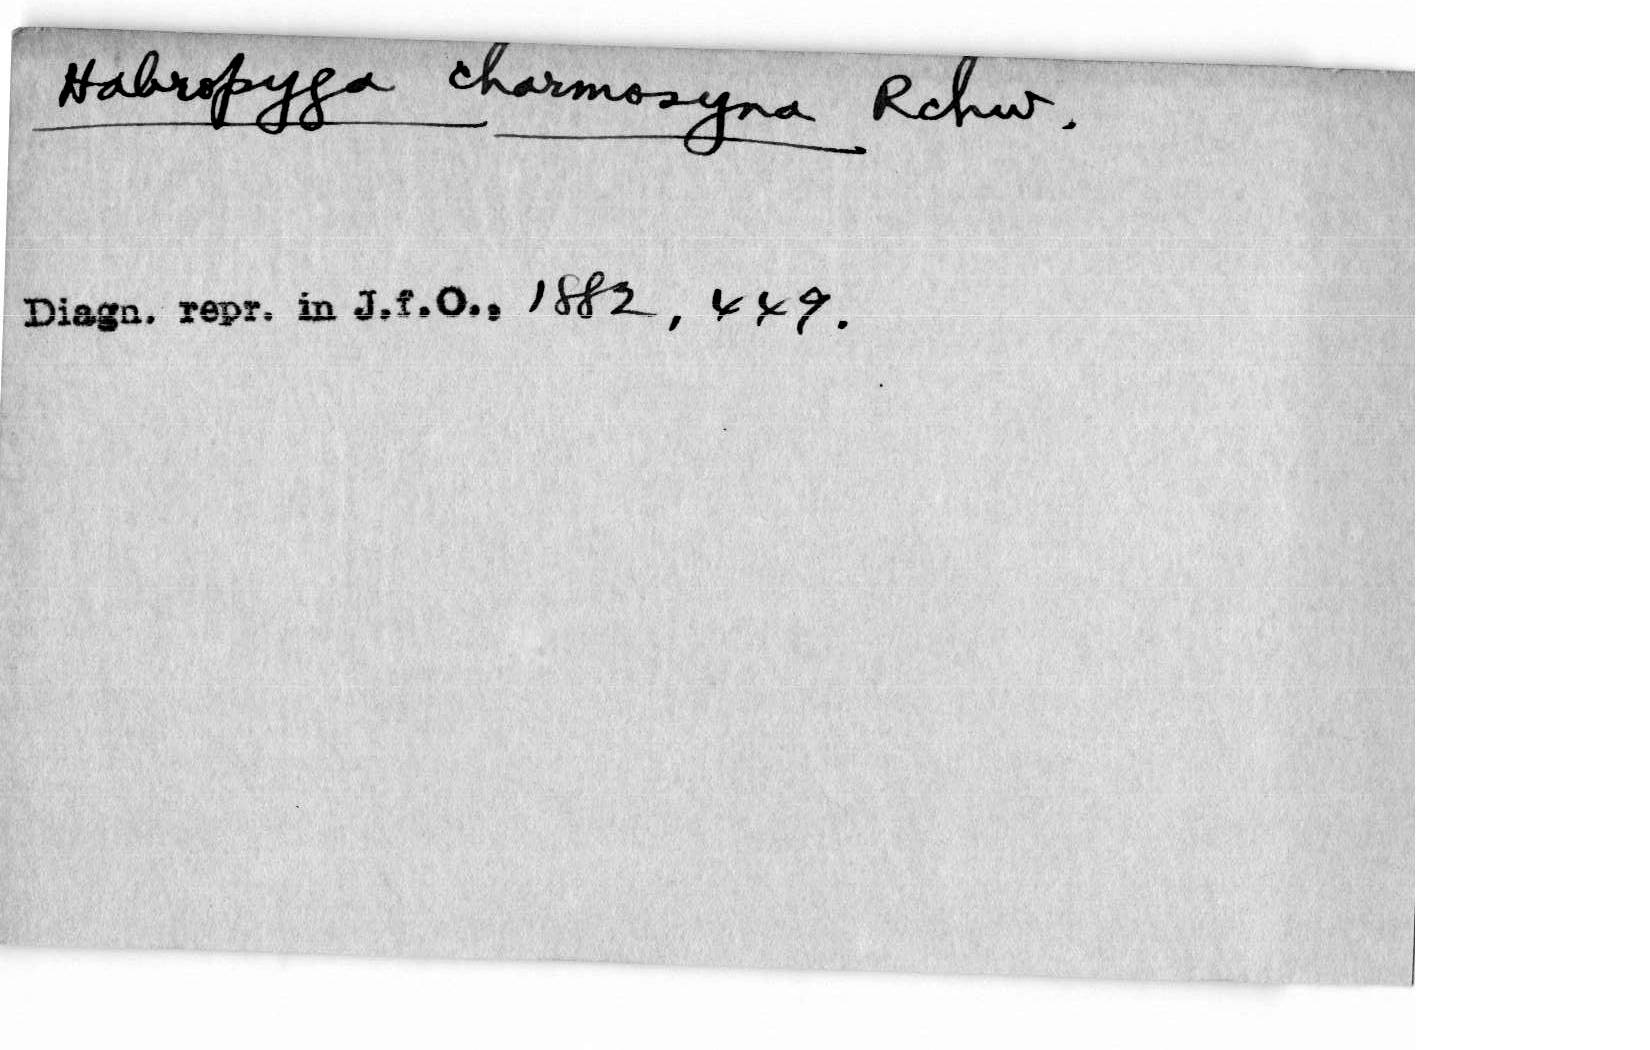 Habropyga charmosyna Rchw.
Diagn. repr. in J.f.O., 1882, 449.